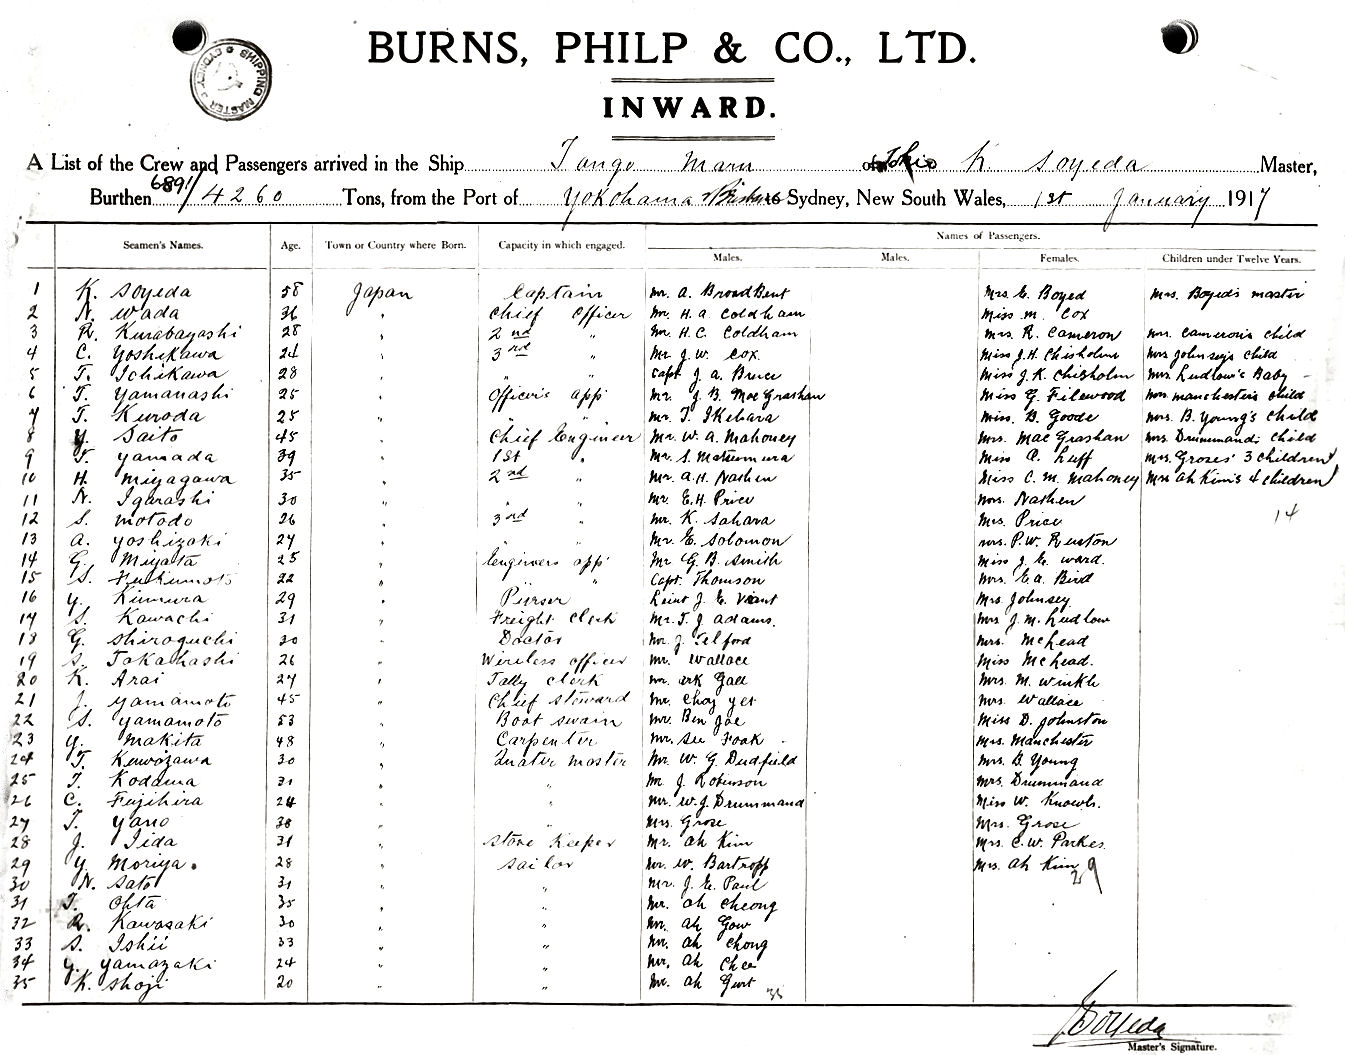 SHIPPING MASTER SYDNEY
BURNS, PHILP & CO., LTD.
INWARD.
A List of the Crew and Passengers arrived in the Ship Tango Maru of Tokio K. Soyeda Master,
Burthen 6891/4260 Tons, from the Port of Yokohama & Brisbane Sydney, New South Wales, 1st January 1917
Names of Passengers.
Seamen's Names. Age. Town or Country where Born. Capacity in which engaged. Males. Males. Females. Children under Twelve Years.
1 K. Soyeda 58 Japan Captain Mr. A. BroadBent Mrs. E. Boyed Mrs. Boyed's master
2 N. Wada 36 " Chief Officer Mr. H. A. Coldham Miss M. Cox
3 R. Kurabayashi 28 " 2nd " Mr. H. C. Coldham Mrs. R. Cameron Mrs. Cameron's child
4 C. Yoshikawa 24 " 3rd " Mr. J. W. Cox Miss J. H. Chisholm Mrs Johnsey's child
5 T. Ichikawa 28 " " " Capt. J. A. Bruce Miss J. K. Chisholm Mrs. Ludlow's Baby
6 T. Yamanashi 25 " Officer's app Mr. J. B. MacGrashan Miss G. Filewood Mrs Manchester's child
7 T. Kuroda 25 " " Mr. T. Ikehara Miss. B. Goode Mrs. B. Young's child
8 Y. Saito 45 " Chief Engineer Mr. W. A. Mahoney Mrs. MacGrashan Mrs. Drummand's child
9 T. Yamada 39 " 1st " Mr. S. Matsumura Miss A. Luff Mrs. Groses' 3 children
10 H. Miyagawa 35 " 2nd " Mr. A. H. Nathen Miss C. M. Mahoney Mrs Ah Kim's 4 children
11 N. Igarashi 30 " " " Mr. E. H. Price Mrs. Nathen
12 S. Motodo 26 " 3rd " Mr. K. Sahara Mrs. Price 14
13 A. Yoshizaki 27 " " " Mr. E. Solomon Mrs. P. W. Ruston
14 G. Miyata 25 " Engineers app Mr G. B. Smith Miss J. E. Ward.
15 S. Fukumoto 22 " " " Capt. Thomson Mrs. E. A. Bird
16 Y. Kimura 29 " Purser Leint J. E. Mrs. Johnsey
17 S. Kawachi 31 " Freight Clerk Mr. T. J. Adams. Mrs J. M. Ludlow
18 G. Shiroguchi 30 " Doctor Mr. J. Telford Mrs. McLead
19 S. Takahashi 26 " Wireless officer Mr. Wallace Miss McLead.
20 K. Arai 27 " Tally clerk Mr. Gall Mrs. M. Winkle
21 J. Yamamoto 45 " Chief steward Mr. Choy Yet Mrs. Wallace
22 S. Yamamoto 53 " Boat swain Mr. Ben Joe Miss D. Johnston
23 Y. Makita 48 " Carpenter Mr. See Fook Mrs. Manchester
24 T. Kurozawa 30 " Quater master Mr. W. G. Dudfield Mrs. B. Young
25 T. Kodama 31 " " Mr. J. Robinson Mrs. Drummand
26 C. Fujihira 24 " " Mr. W. J. Drummand Miss W. Knowls.
27 T. Yano 38 " " Mrs. Grose Mrs. Grose
28 J. Iida 31 " Store keeper Mr. Ah Kim Mrs. C. W. Parkes.
29 Y. Moriya. 28 " Sailor Mr. W. Bartropp Mrs. Ah Kim 29
30 N. Sato 31 " " Mr. J. E. Paul
31 T. Ohta 35 " " Mr. Ah Cheong
32 R. Kawasaki 30 " " Mr. Ah Gow
33 S. Ishii 33 " " Mr. Ah Chong
34 Y. Yamazaki 24 " " Mr. Ah Chee
35 K. Shoji 20 " " Mr. Ah Gurt 35
K Soyeda
Master's Signature.